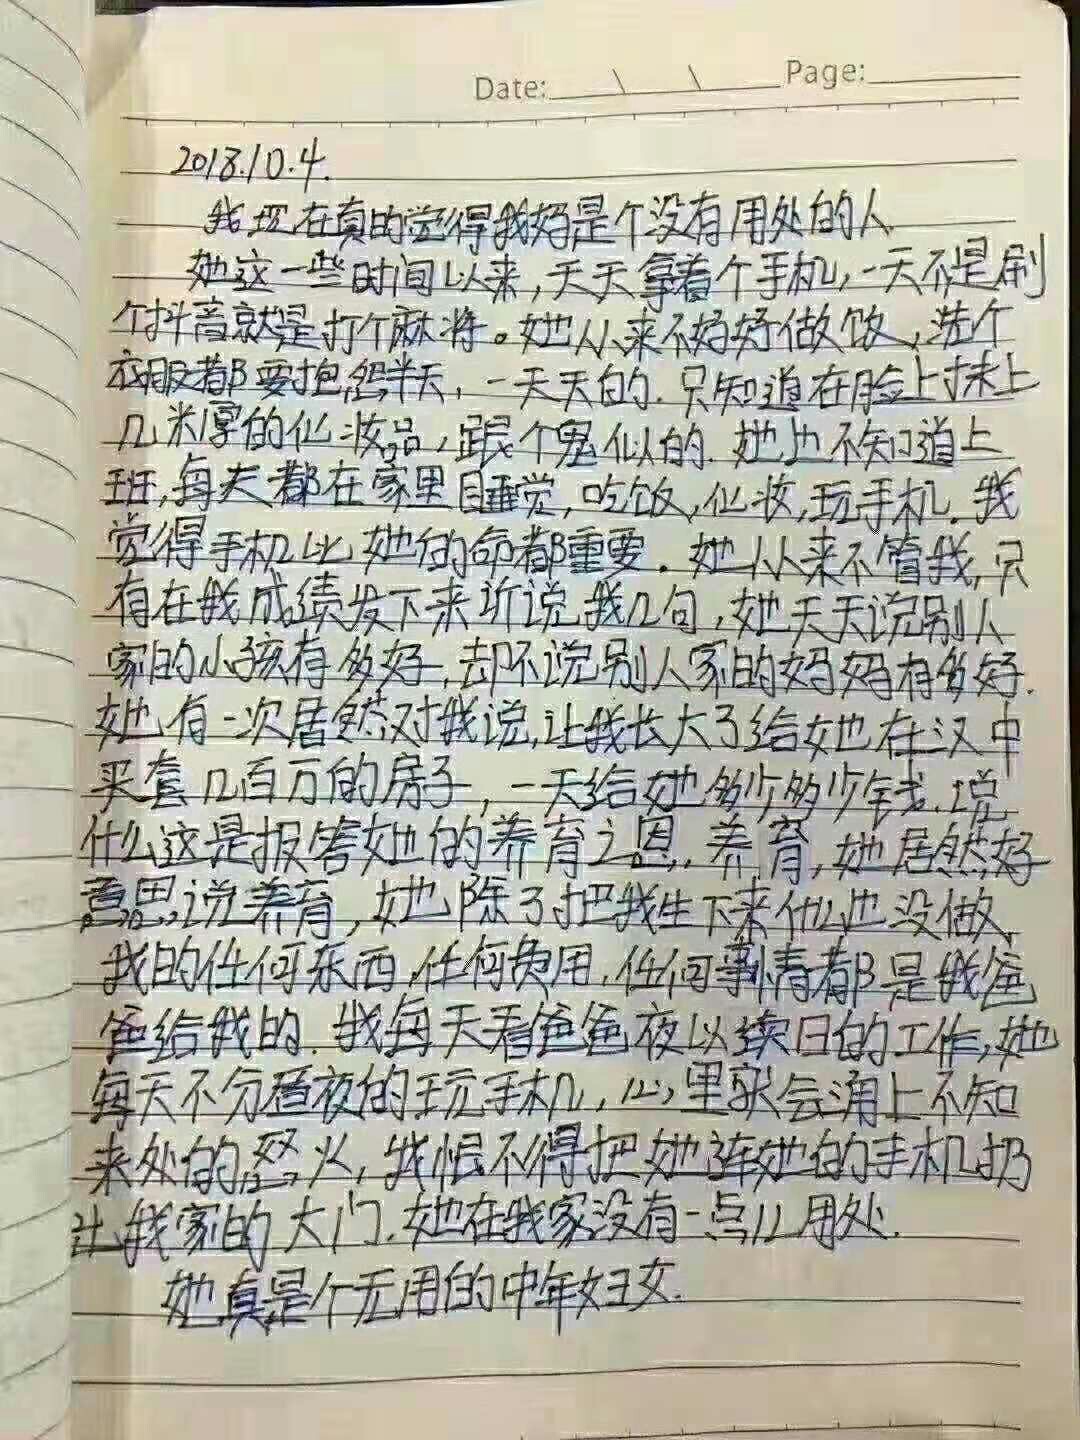 Date: \ \ Page:
2018.10.4.
我现在真的觉得我妈是个没有用处的人
她这一些时间以来，天天拿着个手机，一天不是刷
个抖音就是打个麻将。她从来不好好做饭，洗个
衣服都要抱怨半天，一天天的.只知道在脸上抹上
几米厚的化妆品，跟个鬼似的.她也不知道上
班，每天都在家里睡觉，吃饭，化妆，玩手机.我
觉得手机比她的命都重要。她从来不管我，只
有在我成绩发下来听说我几句，她天天说别人
家的小孩有多好，却不说别人家的妈妈有多好.
她有一次居然对我说，让我长大了给她在汉中
买套几百万的房子，一天给她多少多少钱.说
什么这是报答她的养育之恩，养育，她居然好
意思说养育，她除了把我生下来什么也没做
我的任何东西，任何费用，任何事情都是我爸
爸给我的.我每天看爸爸夜以续日的工作，她
每天不分昼夜的玩手机，心里就会涌上不知
来处的怒火，我恨不得把她连她的手机扔
出我家的大门.她在我家没有一点儿用处.
她真是个无用的中年妇女.